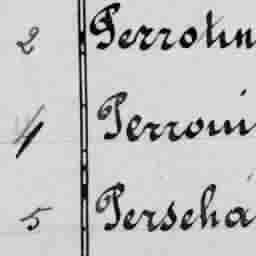 2 Perrotin
4 Perroni
5 Perscha